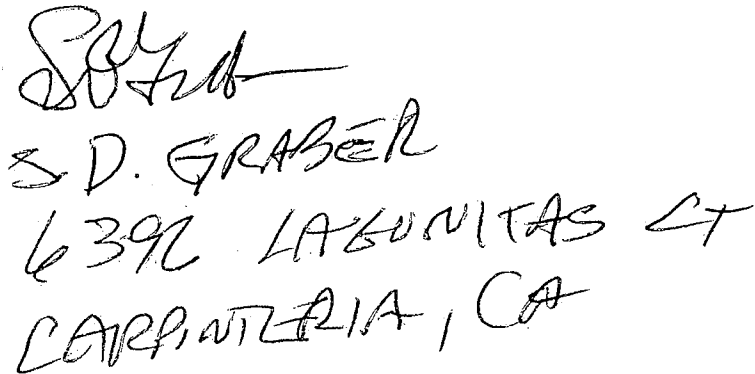 S D. GRABER
6392 LAGUNITAS CT
CARPINTERIA, CA